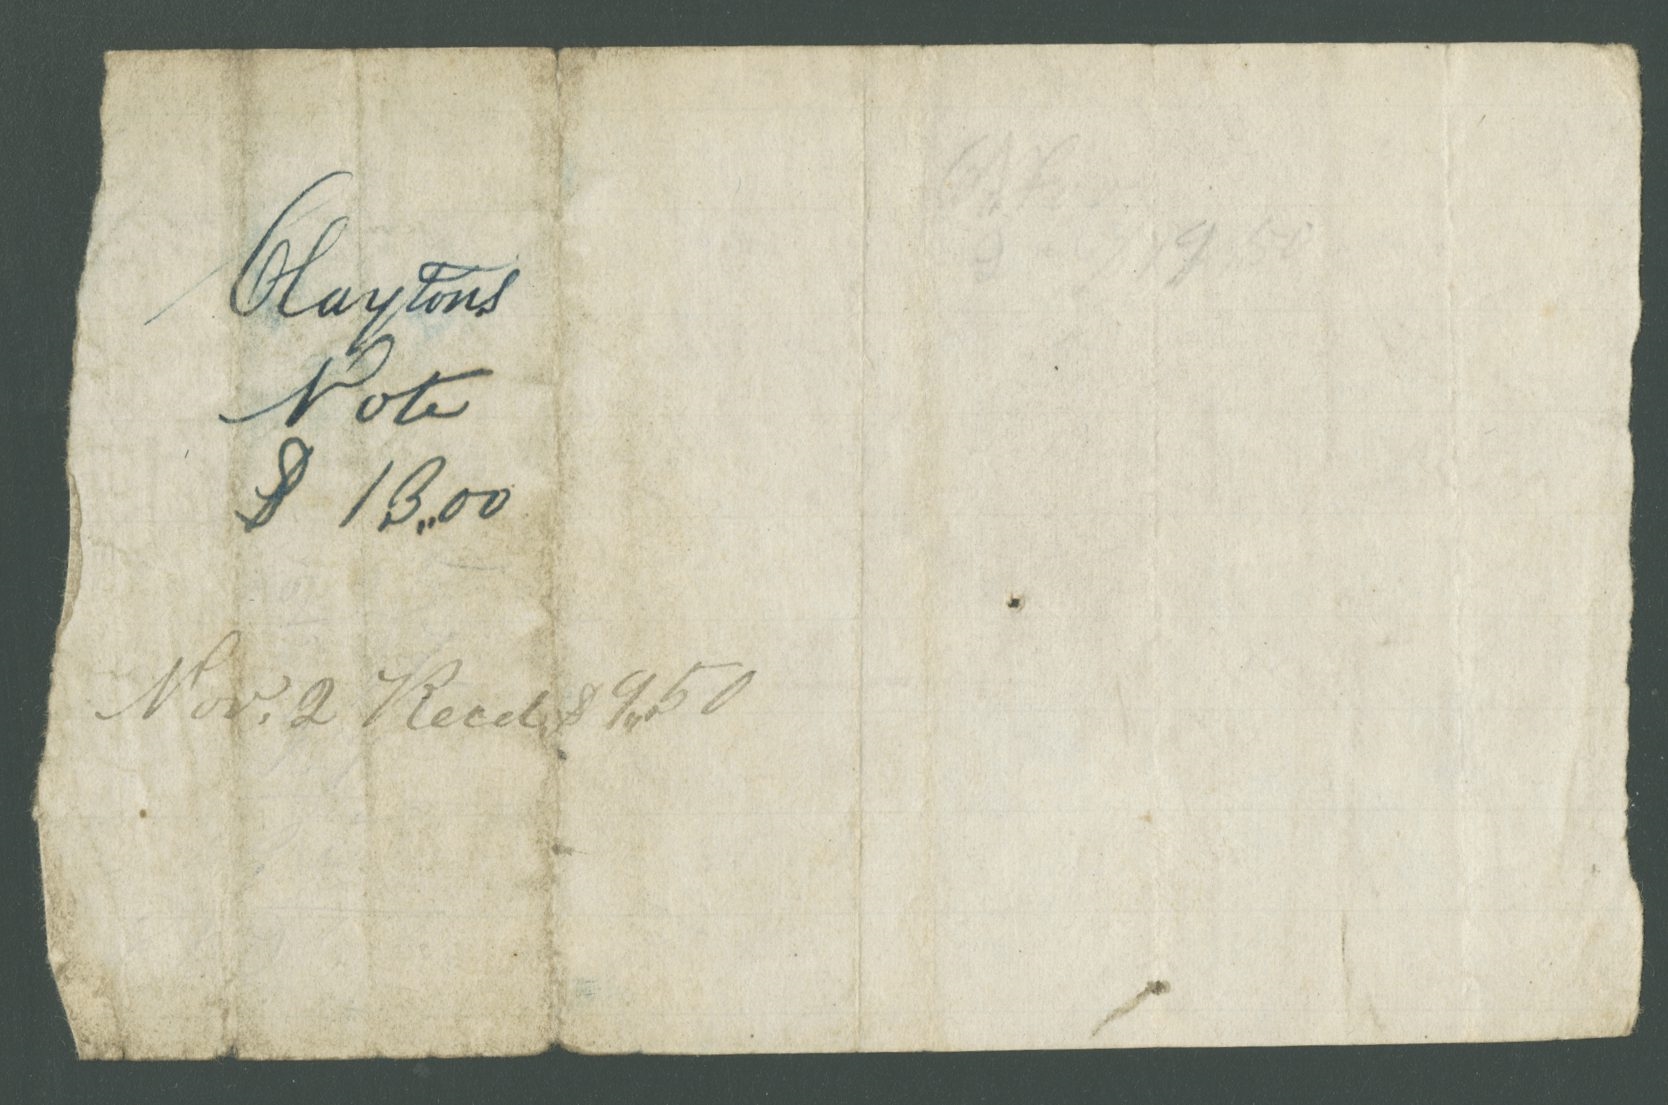 Claytons
Note
$ 13,,00
Nov. 2 Recd $9,,50
9,50